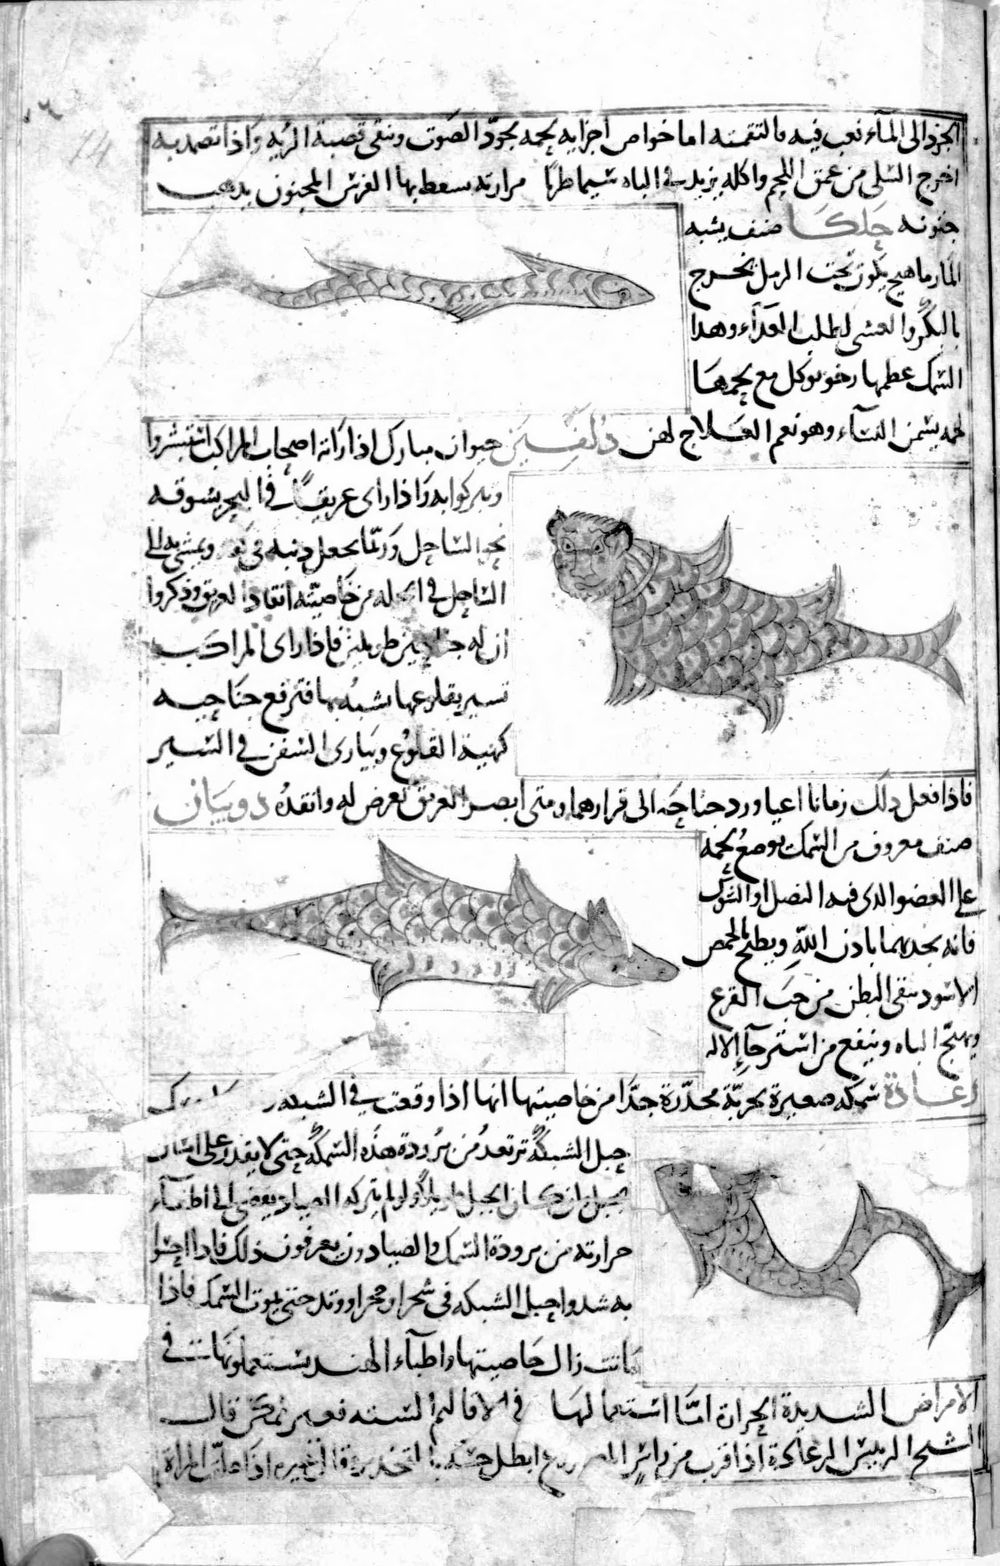 الجرذ الى الماء نعب فيه فالتقمته اما خواص اجزايه لحمه يجود الصوت وينقى قصبة الريه واذا تضمد به
اخرج السلى من عمق اللحم واكله يزيد في الباه سيما طريا مرارته يسعط بها الفرس المجنون يذهب
جنونه جلكا صنف يشبه
المارماهيج يكون تحت الرمل يخرج
بالبكر والعشى لطلب الغداء وهذا
السمك عظمها رخو يوكل مع لحمها
لحمه يسمن النساء وهو نعم العلاج لهن دلفين حيوان مبارك اذا راته اصحاب المراكب استبشروا
وبركوا به واذا راى غريقا في البحر يسوقه
نحو الساحل وربما يجعل ذنبه في ويمشى به الى
الساحل في من خاصيته انقاذ الغريق وذكروا
ان له جناحين طويلين فاذا راى المراكب
تسير بقلوعها يشبه بها فترفع جناحيه
كهيئة القلوع ويبارى السفن في السير
فاذا فعل ذلك زمانا اعيا ورد جناحه الى قرارهما ومتى ابصر الغريق تعرض له وانقذه دوبيان
صنف معروف من السمك يوضع لحمه
على العضو الذى فيه النصل او الشوك
فانه يجذبهما باذن الله ويطبخ بالحمص
الاسود ينقى البطن من حب القرع
ويهيج الباه وينفع من استرخاء الاله
رعادة سمكه صغيرة بحرية مخدرة جدا من خاصيتها انها اذا وقعت في الشبكة
حبل الشبكة ترتعد من برودة هذه السمكة حتى لا يقدر على امساك
الحبل وان كان الحبل طويلا ولو لم يتركه الصياد يفضى الى اطفاء
حرارته من برودة السمك والصيادون يعرفون ذلك فاذا احسوا
به شدوا حبل الشبكه في شجر او حجر او وتد حتى يموت السمك فاذا
ماتت زال خاصيتها واطباء الهند يستعملونها في
الامراض الشديدة الحرارة اما استعمالها في الاقاليم الستة فغير ممكن قال
الشيخ الرييس الرعادة اذا قرب من راس المصروع ابطل حسه وقال غيره اذا علق المراة